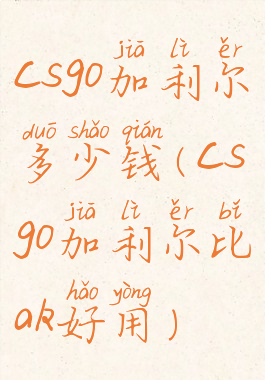 jiā lì ěr
csgo加利尔
duō shǎo qián
多少钱(cs
jiā lì ěr bǐ
go加利尔比
hǎo yòng
ak好用)